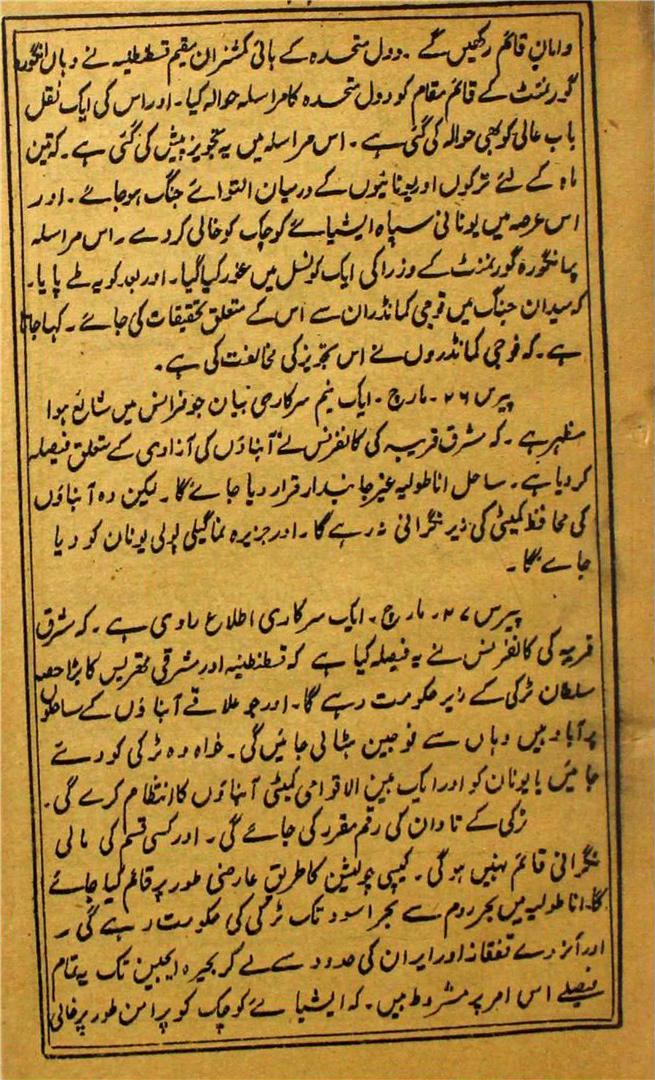 و امان قائم رکھیں گے ۔ دول متحدہ کے ہائی کمشنران مقیم قسطنطنیہ نے وہاں انگورہ
گورنمنٹ کے قائم مقام کو دول متحدہ کا مراسلہ حوالہ کیا ۔ اور اس کی ایک نقل
باب عالی کو بھی حوالہ کی گئی ہے ۔ اس مراسلہ میں یہ تجویز پیش کی گئی ہے ۔ کہ تین
ماہ کے لئے ترکوں اور یونانیوں کے درمیان التوائے جنگ ہوجائے ۔ اور
اس عرصہ میں یونانی سپاہ ایشیائے کوچک کو خالی کردے ۔ اس مراسلہ
پر انگورہ گورنمنٹ کے وزرا کی ایک کونسل میں غور کیا گیا ۔ اور بعد کو یہ طے پایا ۔
کہ میدان جنگ میں فوجی کمانڈران سے اس کے متعلق تحقیقات کی جائے ۔ کہا جاتا
ہے ۔ کہ فوجی کمانڈروں نے اس تجویز کی مخالفت کی ہے ۔
پیرس ۲۶ ۔ مارچ ۔ ایک نیم سرکاری بیان جو فرانس میں شائع ہوا
مظہر ہے ۔ کہ مشرق قریبہ کی کانفرنس نے آبناؤں کی آزادی کے متعلق فیصلہ
کردیا ہے ۔ ساحل اناطولیہ غیر جانبدار قرار دیا جائے گا ۔ لیکن وہ آبناؤں
کی محافظ کمیٹی کی زیر نگرانی نہ رہے گا ۔ اور جزیرہ نما گیلی پولی یونان کو دیا
جائے گا ۔
پیرس ۲۷ ۔ مارچ ۔ ایک سرکاری اطلاع راوی ہے ۔ کہ مشرق
قریبہ کی کانفرنس نے یہ فیصلہ کیا ہے کہ قسطنطنیہ اور مشرقی تھریس کا بڑا حصہ
سلطان ٹرکی کے زیر حکومت رہے گا ۔ اور جو علاقے آبناؤں کے ساحلوں
پر آباد ہیں وہاں سے فوجیں ہٹالی جائیں گی ۔ خواہ وہ ٹرکی کو دئے
جائیں یا یونان کو اور ایک بین الاقوامی کمیٹی آبناؤں کا انتظام کرے گی ۔
ٹرکی کے تاوان کی رقم مقرر کی جائے گی ۔ اور کسی قسم کی مالی
نگرانی قائم نہیں ہوگی ۔ کیپی چولیشن کا طریق عارضی طور پر قائم کیا جائے
گا ۔ اناطولیہ میں بحر روم سے بحر اسود تک ٹرکی کی حکومت رہے گی ۔
اور قفقانہ اور ایران کی حدود سے لے کر بحیرہ ایجین تک یہ تمام
فیصلے اس امر پر مشروط ہیں ۔ کہ ایشیائے کوچک کو پرامن طور پر خالی